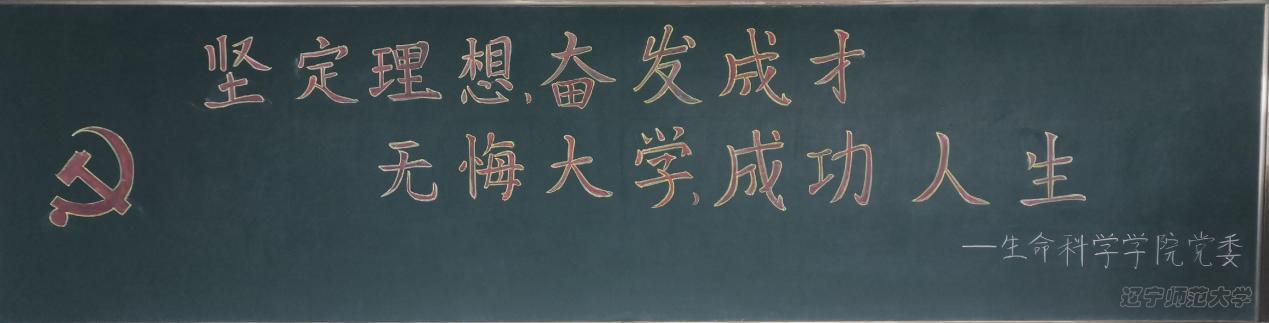 坚定理想、奋发成才
无悔大学、成功人生
—生命科学学院党委
辽宁师范大学